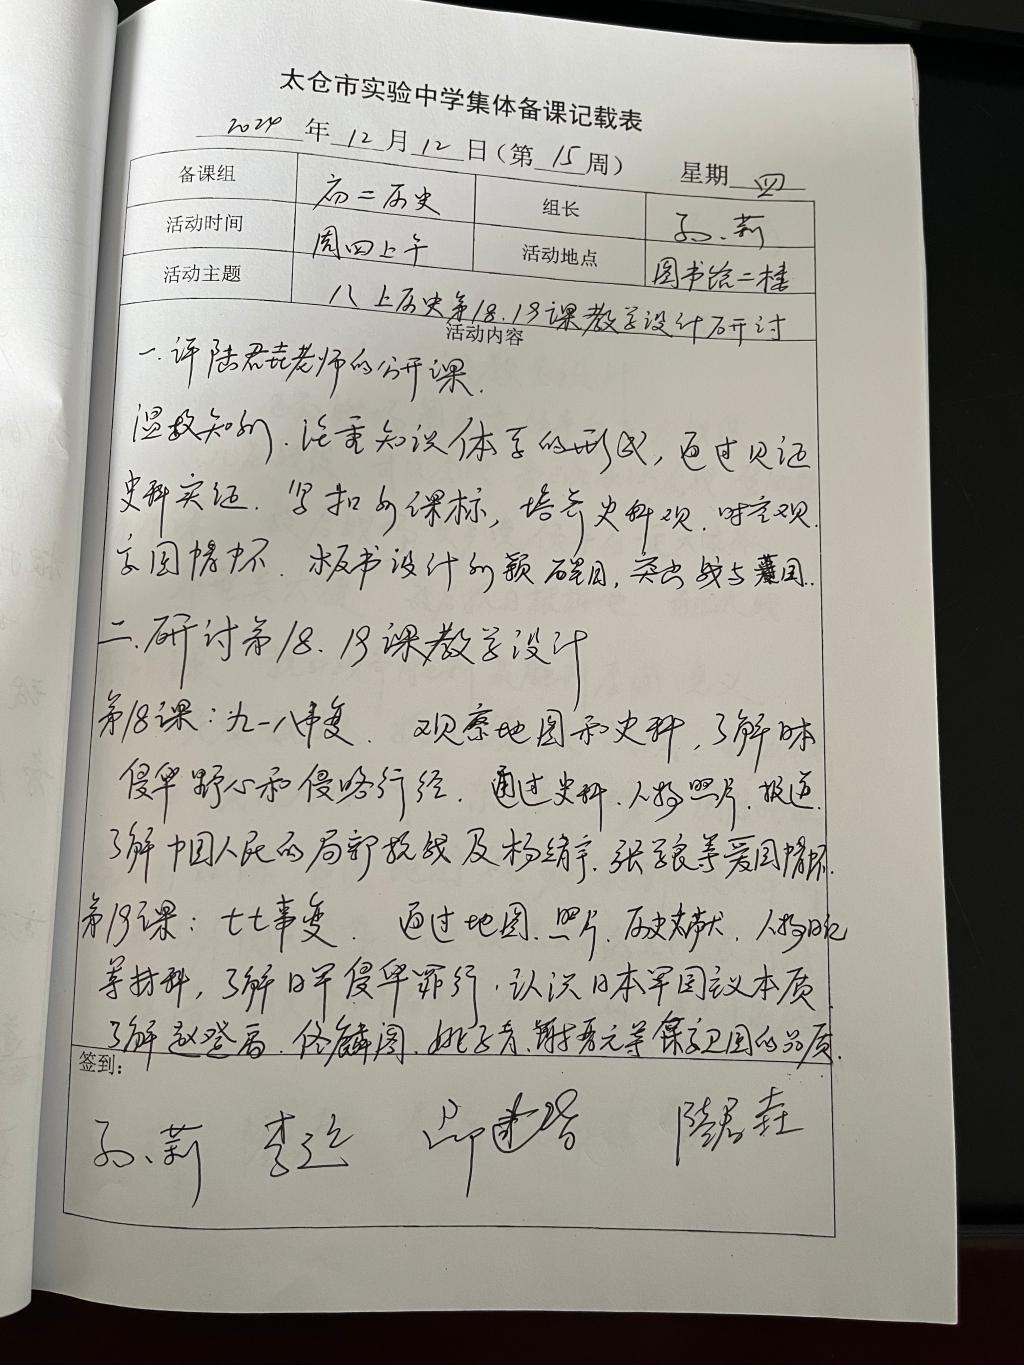 太仓市实验中学集体备课记载表
2024 年 12 月 12 日（第 15 周） 星期 四
备课组 初二历史 组长 孙莉
活动时间 周四上午 活动地点 图书馆二楼
活动主题 八上历史第18.19课教学设计研讨
活动内容
一.评陆君垚老师的公开课.
温故知新.注重知识体系的形成，通过见证
史料实证.紧扣新课标，培养史料观.时空观.
家国情怀.板书设计新颖醒目，突出战与
二.研讨第18.19课教学设计
第18课：九一八事变.观察地图和史料，了解日本
侵华野心和侵略行径.通过史料.人物照片.报道.
了解中国人民的局部抗战及杨靖宇.张学良等爱国情怀.
第19课：七七事变.通过地图.照片.历史文献.人物日记
等材料，了解日军侵华罪行.认识日本军国主义本质
了解赵登禹.佟麟阁.姚子青.谢晋元等保家卫国的品质.
签到：
孙莉 陆君垚